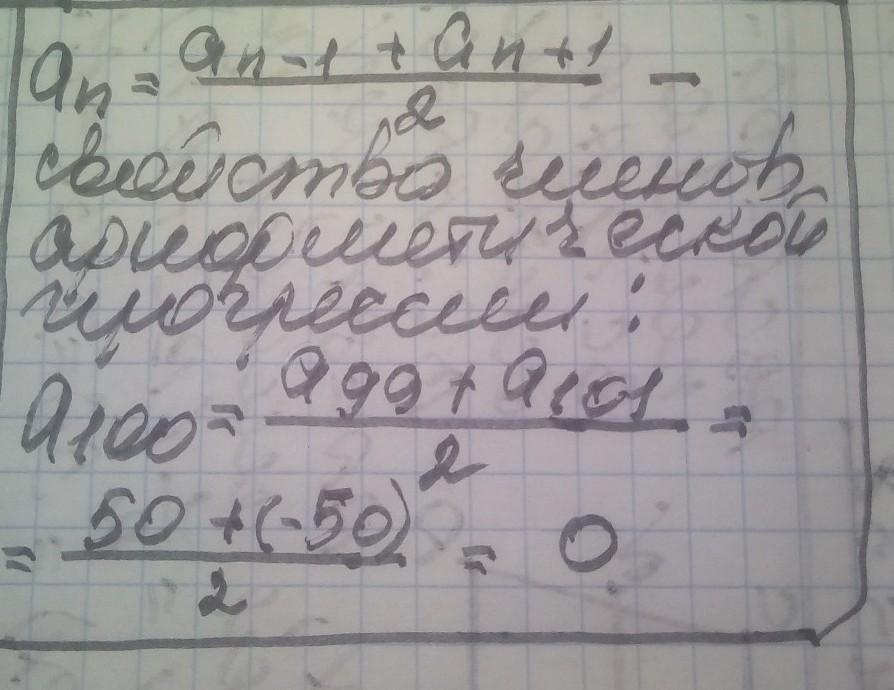 aₙ = (aₙ₋₁ + aₙ₊₁)/2 –
свойство членов
арифметической
прогрессии:
a₁₀₀ = (a₉₉ + a₁₀₁)/2 =
= (50 + (-50))/2 = 0